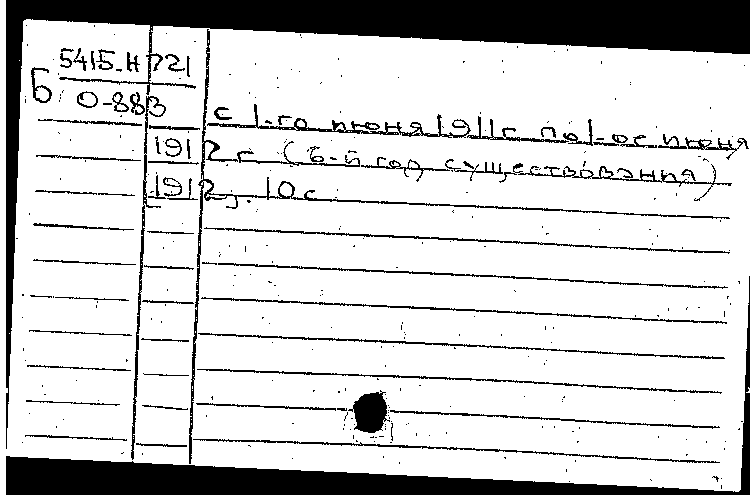 5415-Н 721
Б 0-883
с 1-го июня 1911 г. по 1-ое июня
1912 г. (6-й год существования)
[1912]. 10 с.